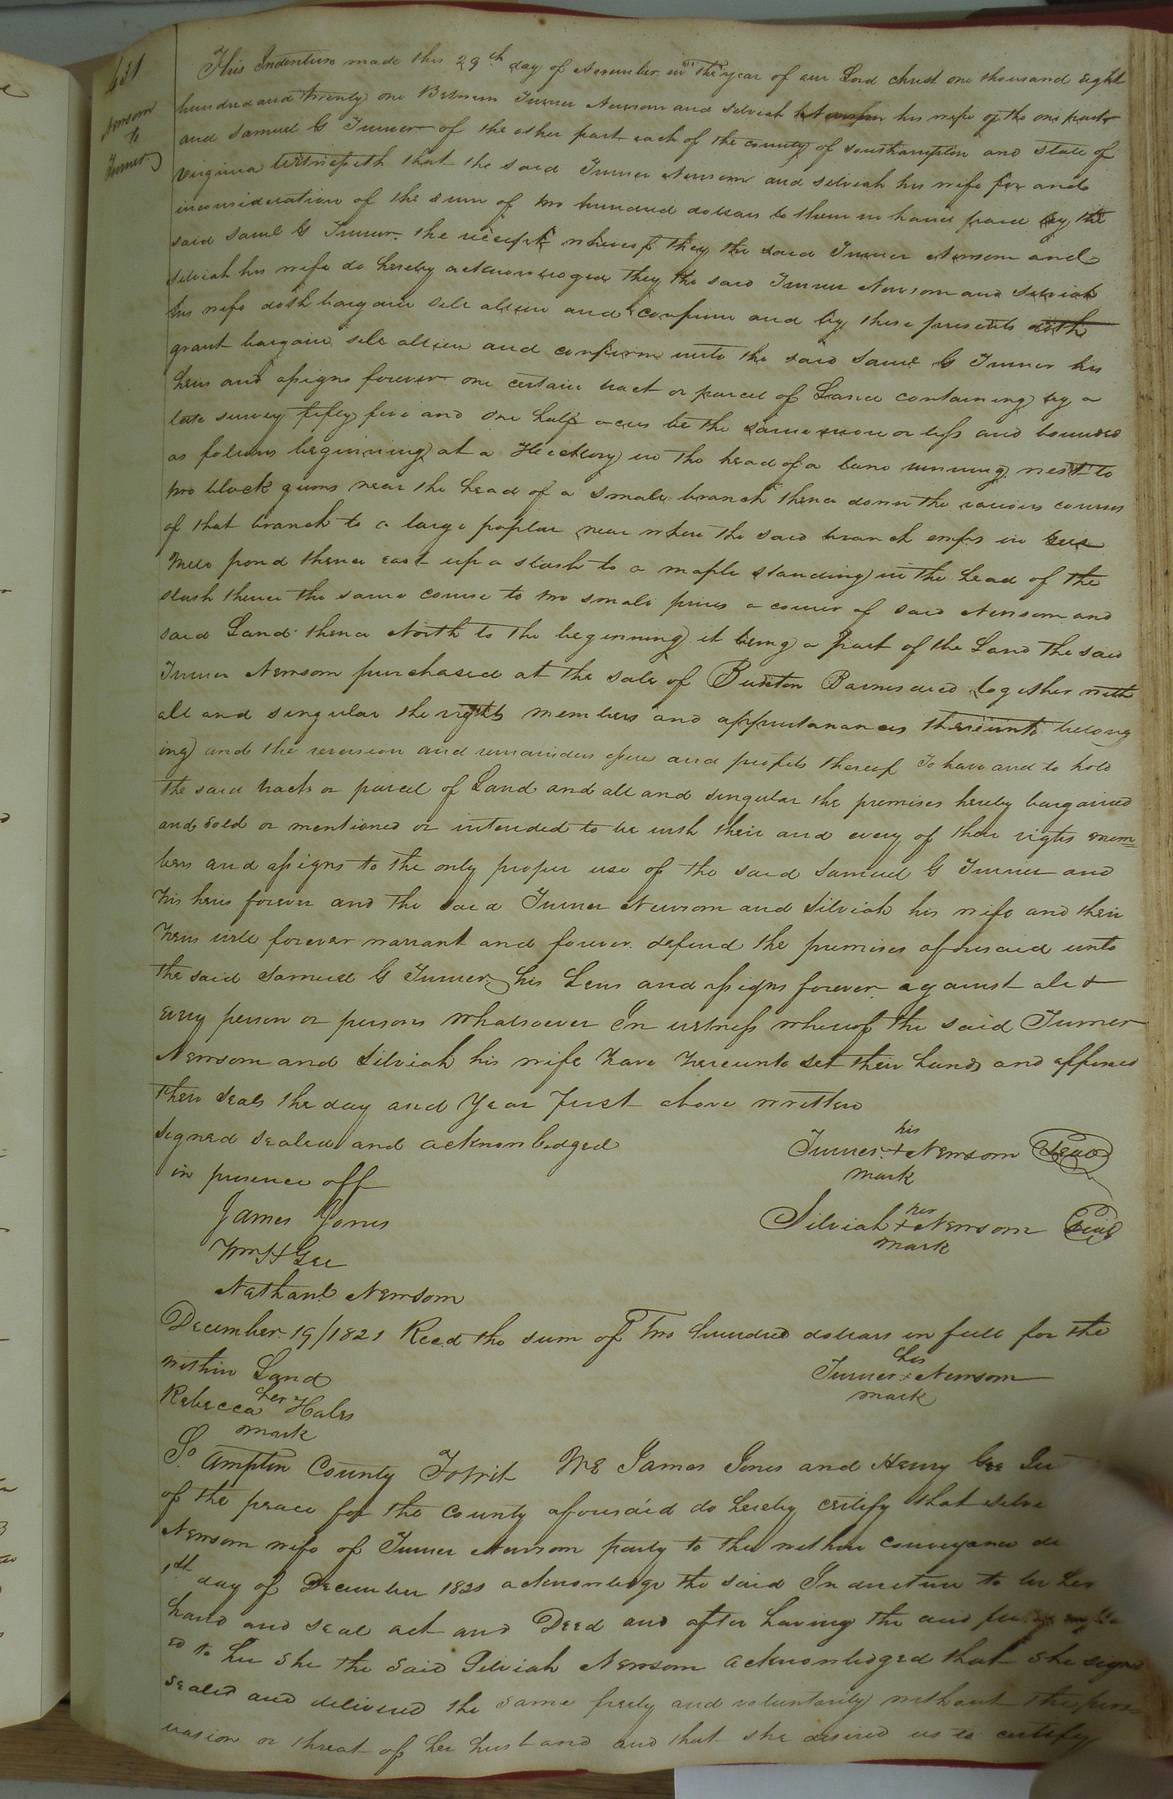 431
Newsom
to
Turner
This Indenture made this 29th day of November in the year of our Lord christ one thousand eight
hundred and twenty one Between Turner Newsom and Silviah his wife of the one part
and Samuel G Turner of the other part each of the county of Southampton and State of
Virginia Witnesseth that the said Turner Newsom and Silviah his wife for and
inconsideration of the sum of two hundred dollars to them in hand paid by the
said Saml G Turner the receipt whereof they the said Turner Newsom and
Silviah his wife do hereby acknowledged they the said Turner Newsom and Silviah
his wife doth bargain sell alien and confirm and by these presents doth
grant bargain sell alien and confirm unto the said Saml G Turner his
heirs and assigns forever one certain tract or parcel of Land containing by a
late survey fifty five and one half acres be the same more or less and bounded
as follows beginning at a Hickory in the head of a lane running west to
two black gums near the head of a small branch thence down the various courses
of that branch to a large poplar near where the said branch emps in Gees
Mill pond thence east up a slash to a maple standing in the head of the
slash thence the same course to two small pines a corner of said Newsom and
said Land thence North to the beginning it being a part of the Land the said
Turner Newsom purchased at the sale of Burton Barnes decd together with
all and singular the rights members and appurtanances thereunto belong
ing and the reversion and remainders and profits thereof To have and to hold
the said tract or parcel of Land and all and singular the premises hereby bargained
and sold or mentioned or intended to be with their and every of their rights mem=
bers and assigns to the only proper use of the said Samuel G Turner and
his heirs forever and the said Turner Newsom and Silviah his wife and their
heirs will forever warrant and forever defend the premises aforesaid unto
the said Samuel G Turner his heirs and assigns forever against all &
every person or persons whatsoever In witness whereof the said Turner
Newsom and Silviah his wife have hereunto set their hands and affixed
their seals the day and Year first above written
Signed sealed and acknowledged
in presence off
his
Turner + Newsom Seal
mark
James Jones
her
Silviah + Newsom Seal
mark
Wm H Gee
Nathanl Newsom
December 19/1821 Recd the sum of Two hundred dollars in full for the
within Land
his
Turner + Newsom
mark
her
Rebecca Hales
mark
So ampton County Towit We James Jones and Henry Gee
of the peace for the County aforesaid do hereby certify that
Newsom wife of Turner Newsom party to the within conveyance
1st day of December 1821 acknowledge the said Indenture to be her
hand and seal act and Deed and after having the
ed to her she the said Silviah Newsom acknowledged that she signed
sealed and delivered the same freely and voluntarily without the pers
uasion or threat of her husband and that she desired us to certify